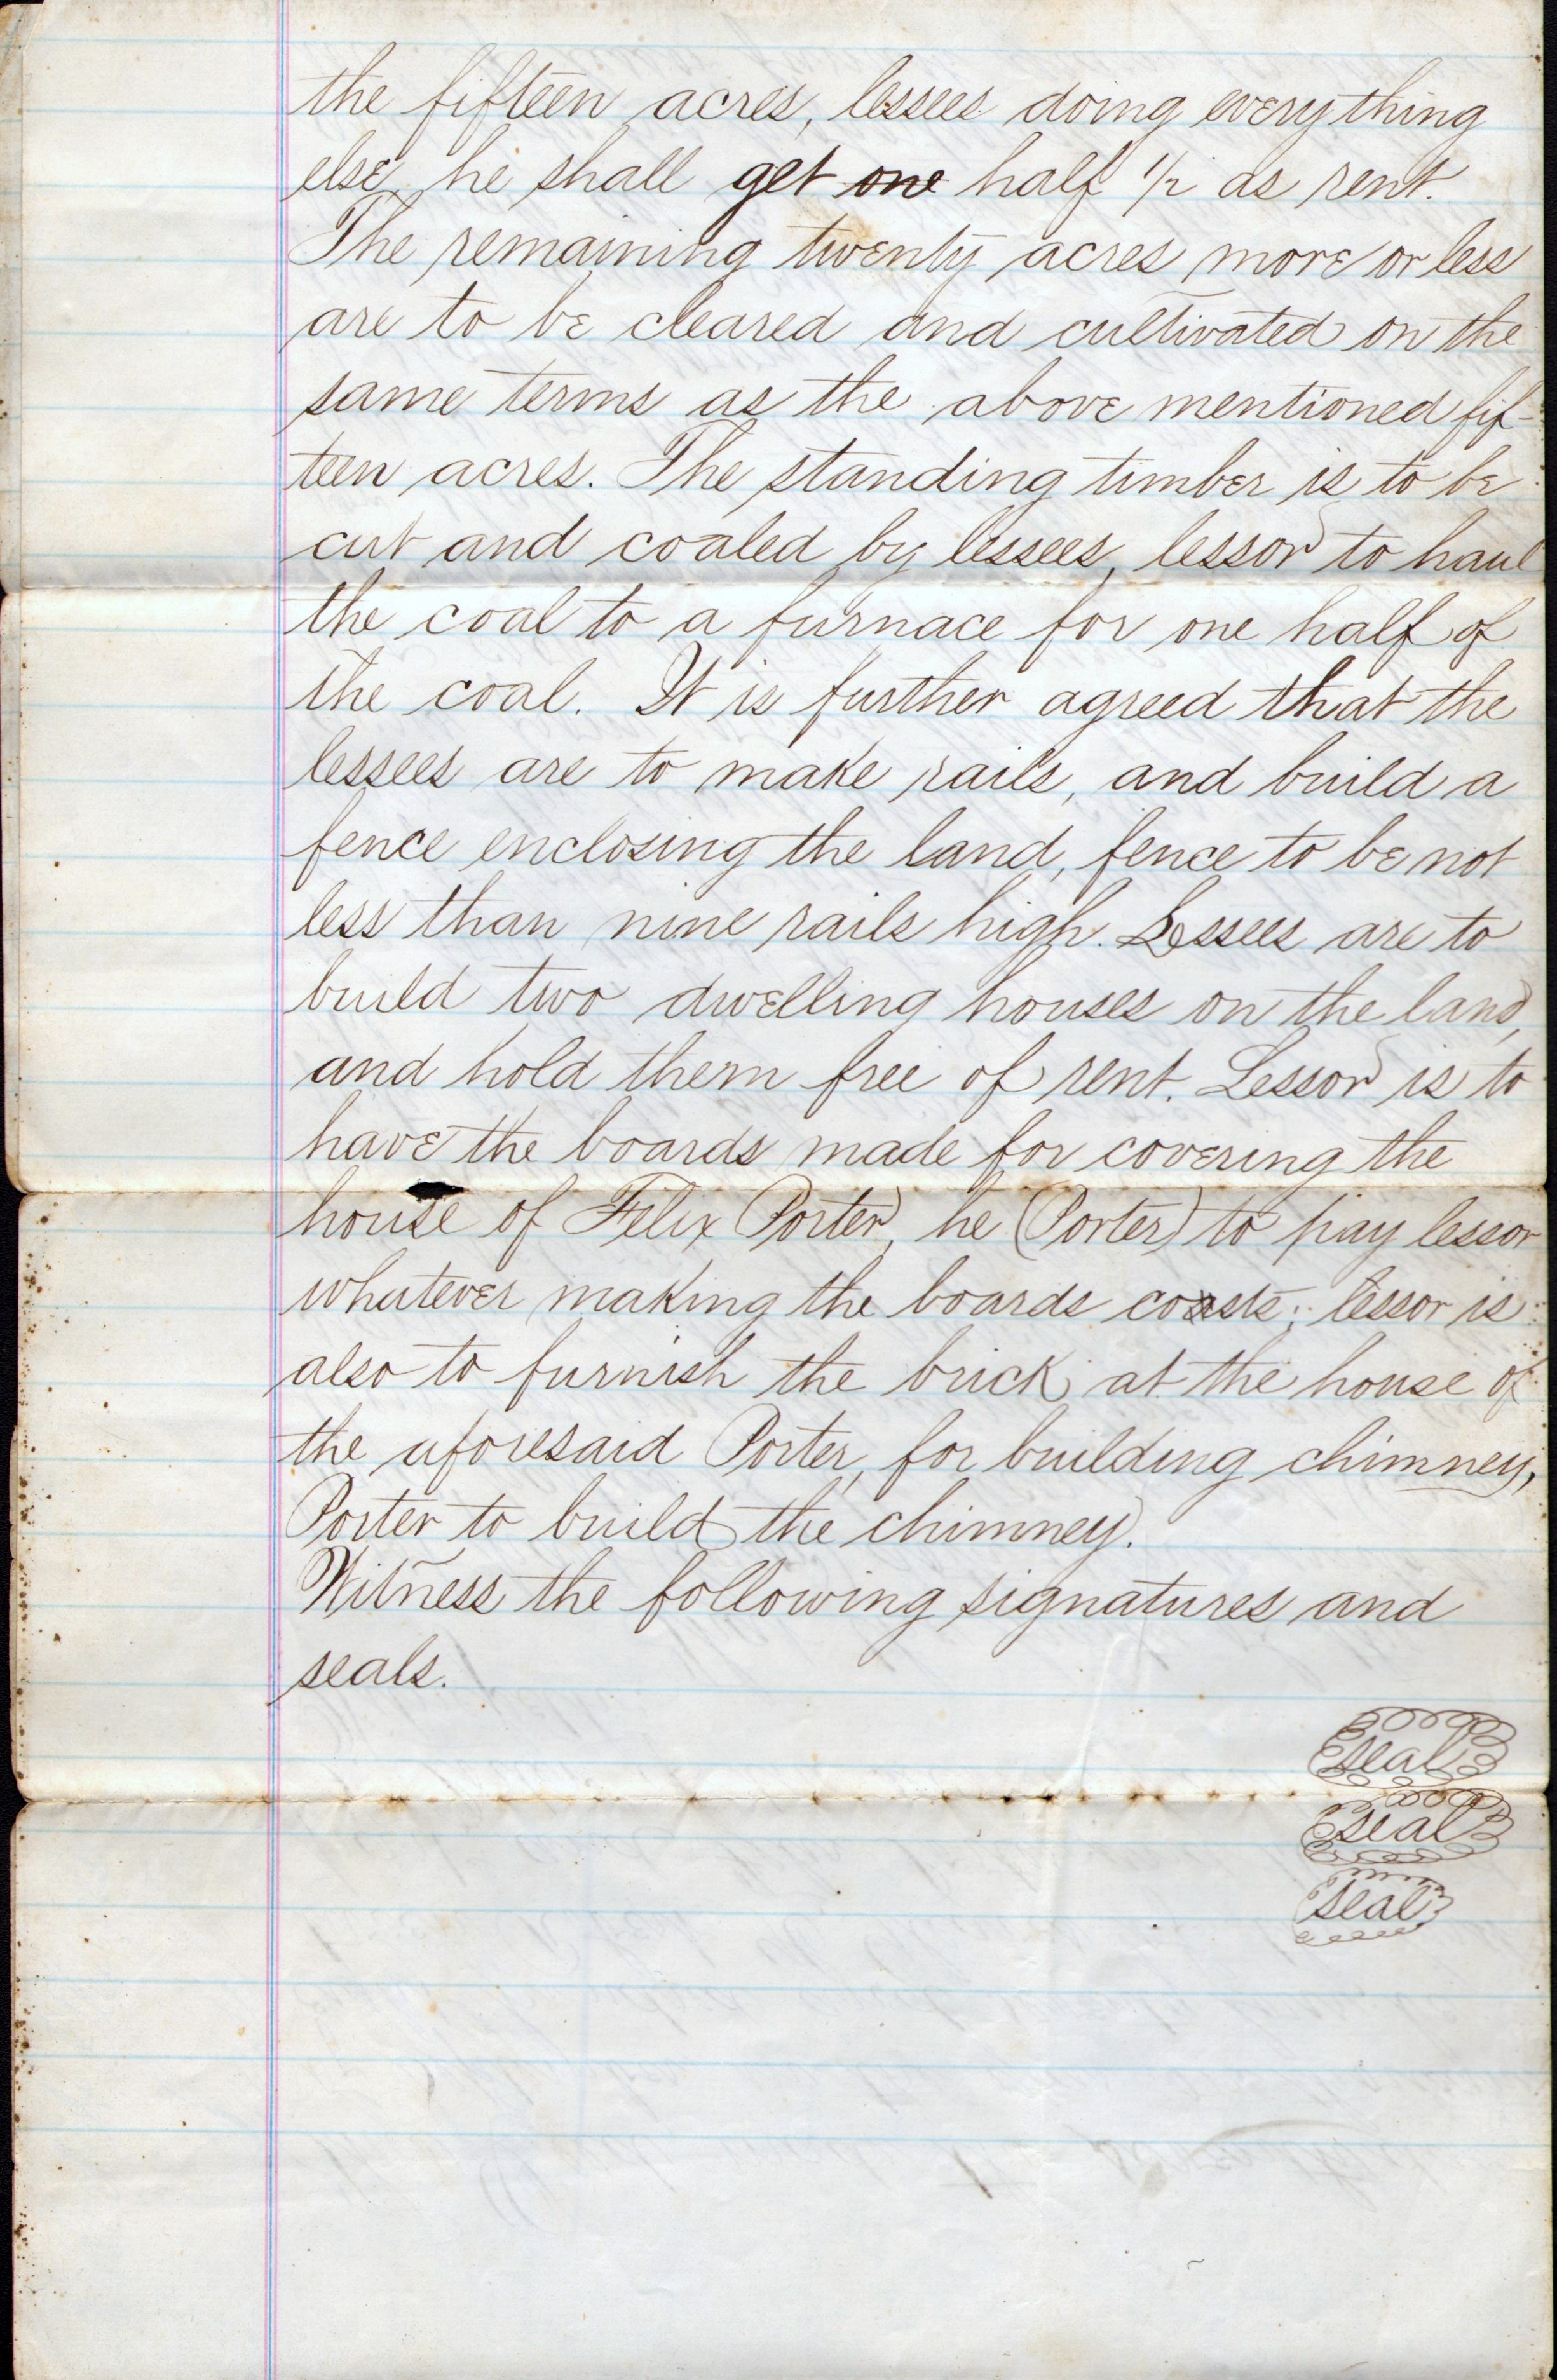 the fifteen acres, lessees doing everything
else, he shall get one half 1/2 as rent.
The remaining twenty acres more or less
are to be cleared and cultivated on the
same terms as the above mentioned fif-
teen acres. The standing timber is to be
cut and coaled by lessees, lessor to haul
the coal to a furnace for one half of
the coal. It is further agreed that the
lessees are to make rails, and build a
fence enclosing the land, fence to be not
less than nine rails high. Lessees are to
build two dwelling houses on the land,
and hold them free of rent. Lessor is to
have the boards made for covering the
house of Felix Porter, he (Porter) to pay lessor
whatever making the boards costs; lessor is
also to furnish the brick at the house of
the aforesaid Porter, for building chimney,
Porter to build the chimney.
Witness the following signatures and
seals.
seal
seal
seal